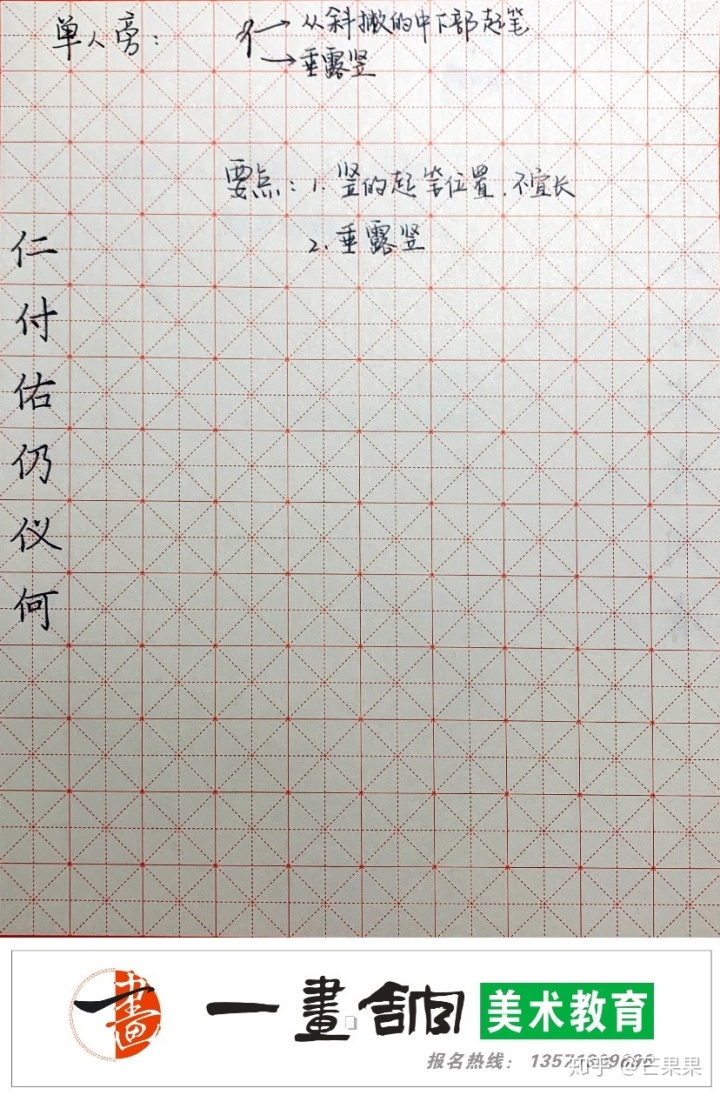 单人旁：
亻→从斜撇的中下部起笔
→垂露竖
要点：1. 竖的起笔位置，不宜长
2. 垂露竖
仁
付
佑
仍
仪
何
一畫舍向 美术教育
报名热线：
知乎 @芒果果